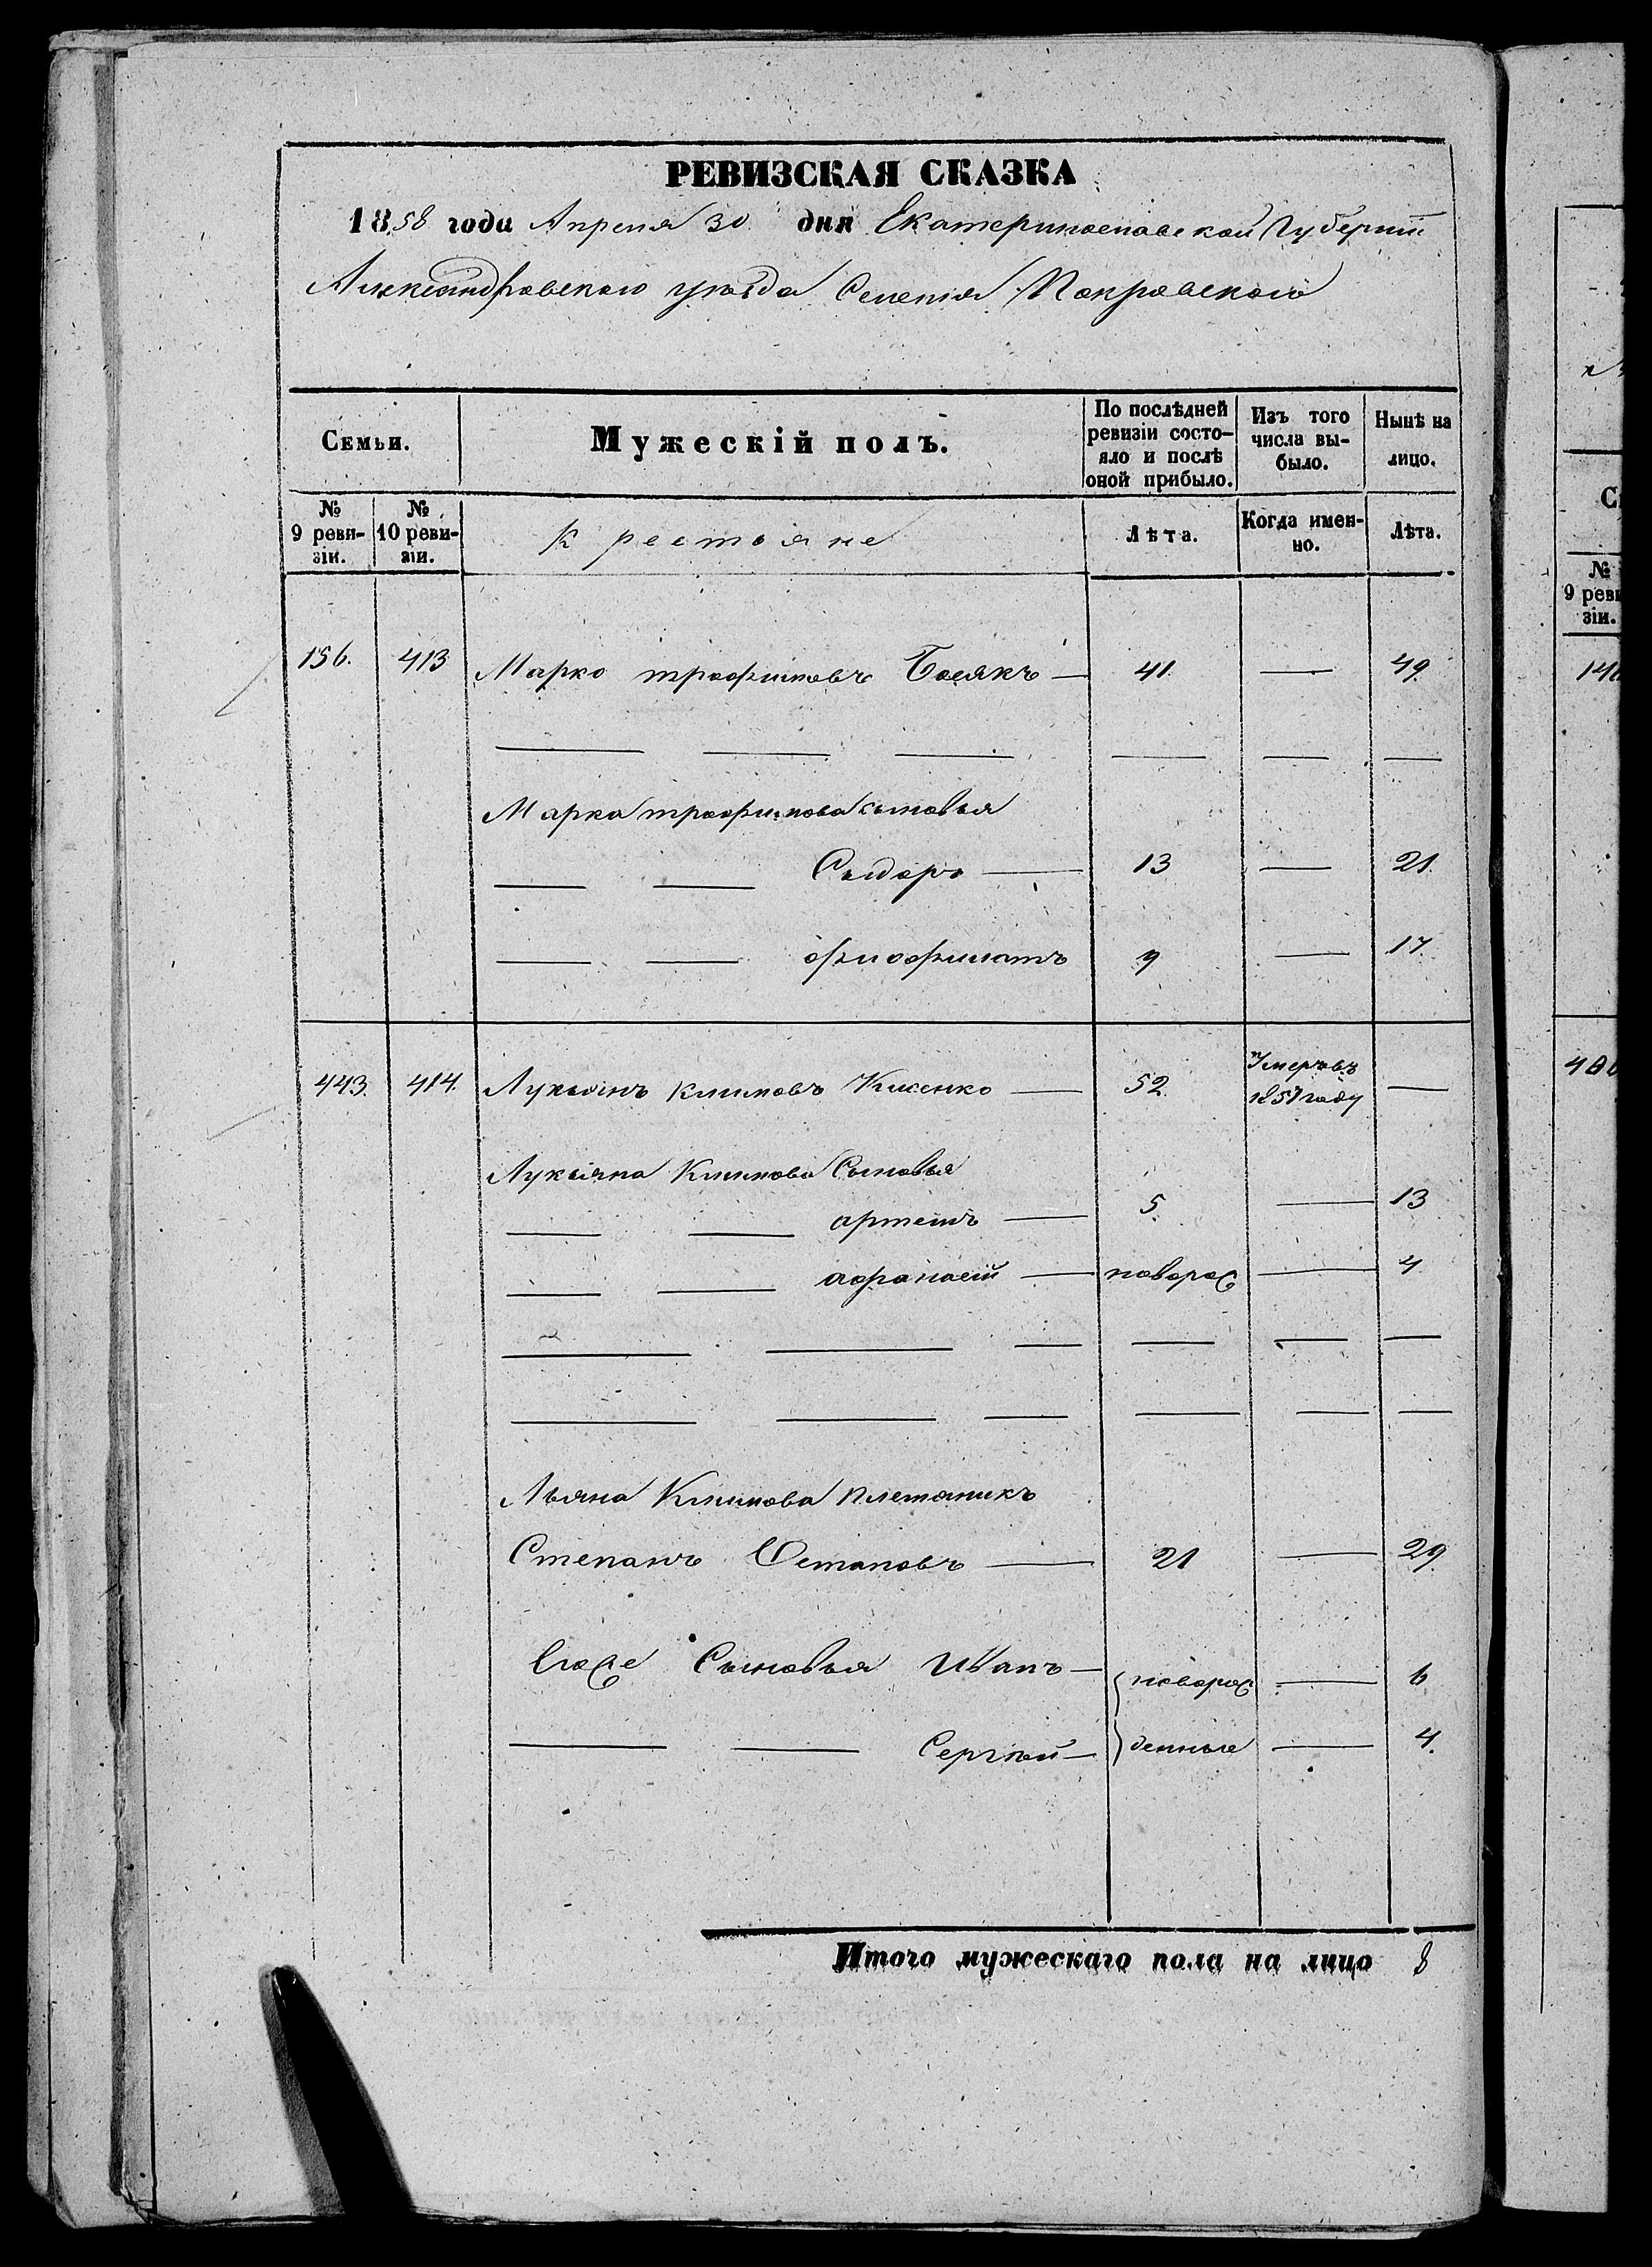 РЕВИЗСКАЯ СКАЗКА
1858 года Апреля 30 дня Екатеринославской Губерніи
Александровскаго уѣзда Селенія Покровскаго
Семьи.
Мужескій полъ.
По послѣдней ревизіи состо-
яло и послѣ оной прибыло.
Изъ того числа вы-
было.
Нынѣ на лицо.
№ 9 реви-
зіи.
№ 10 реви-
зіи.
Крестьяне
Лѣта.
Когда имен-
но.
Лѣта.
156. 413 Марко трофимовъ Боякъ — 41. — 49.
Марка трофимова сыновья
Сыдоръ — 13 — 21.
9 — 17.
443. 414. Лукьянъ климовъ — 52. Умеръ въ 1857 году —
Лукьяна Климова Сыновья
артемъ — 5. — 13
афанасій — новорож — 4
Климова племяникъ
Степанъ Остаповъ — 21 — 29.
Сыновья Иванъ — новорож — 6
Сергѣй — денные — 4.
Итого мужескаго пола на лицо 8
№
9 реви
зіи.